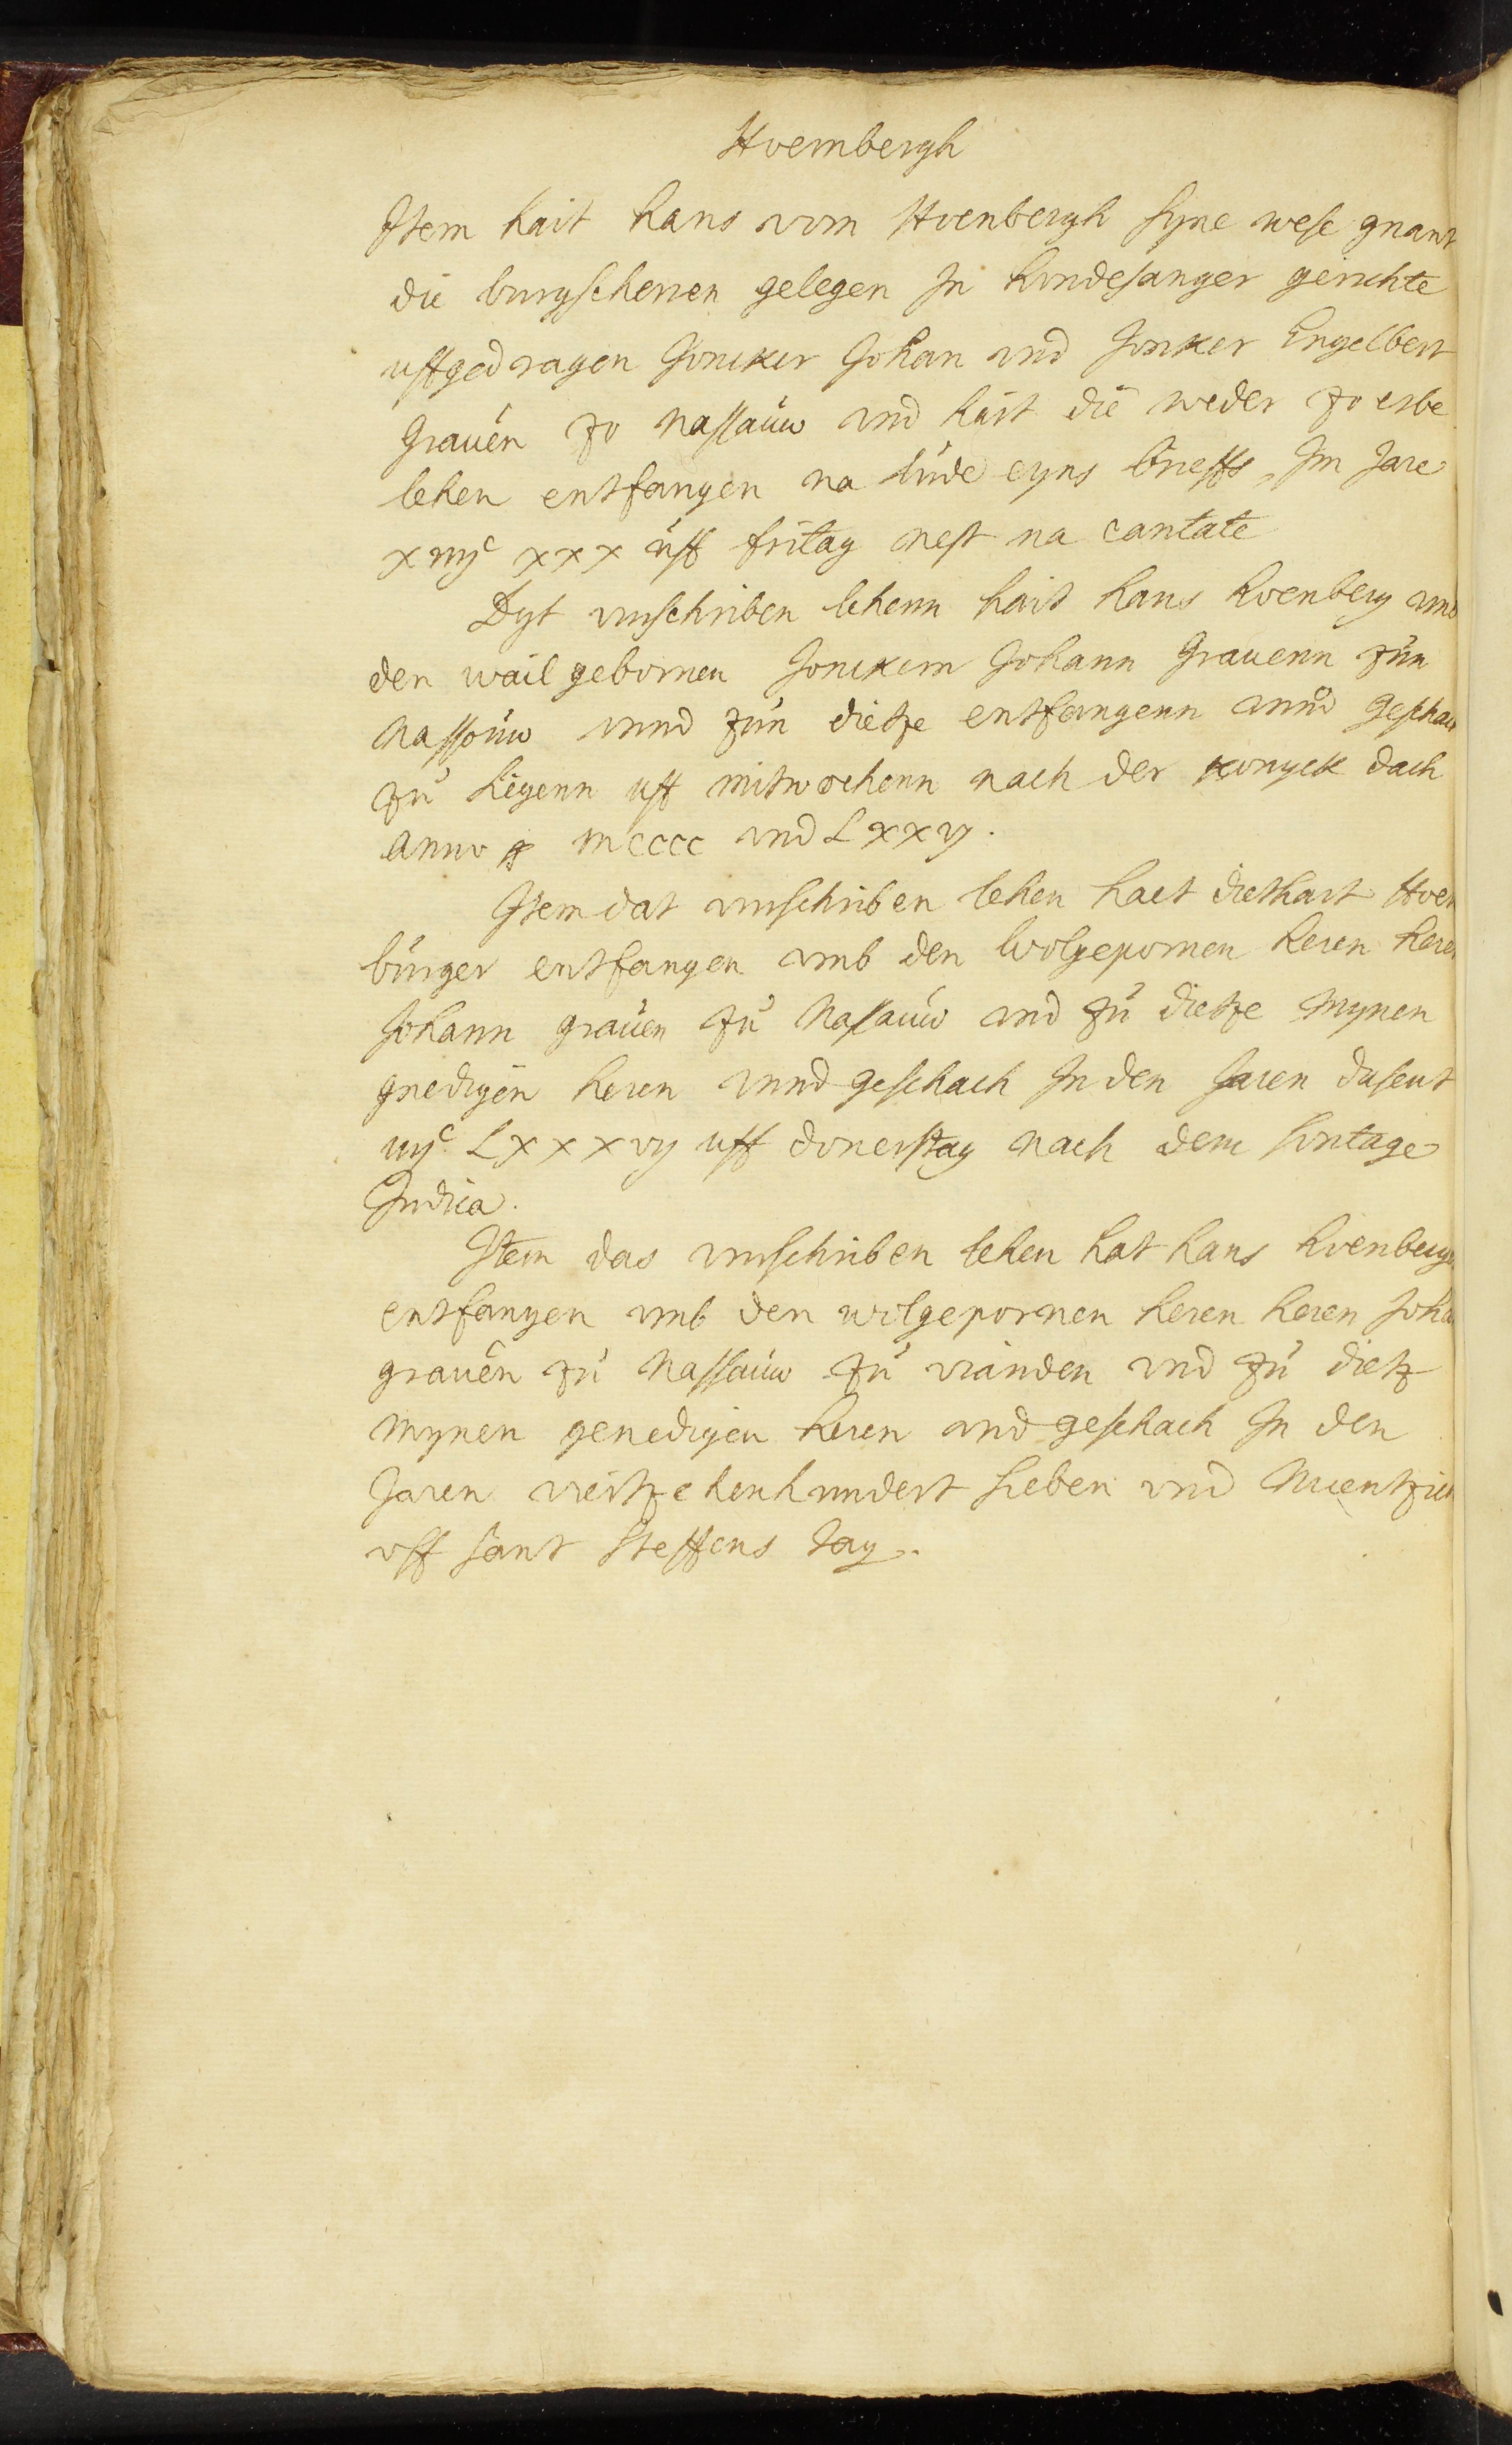 Hoembergh
Item hait hans vom Hoenbergh syne wese gnant
die burgscheuen gelegen In hundesanger gerichte
uffgedragen Joncker Johan vnd Jonker Engelbert
Grauen zo Nassauw vnd hait die weder zo erbe
lehen entfangen na lude eyns brieffs, Im Jare
xiiijc xxx uff fritag nest na cantate
Dyt vurschriben lehenn hait hans hoenberg vmb
den wail gebornen Jonckern Johann Grauenn zun
Nassouw vnnd zun dietze entfangenn vnnd geschach
zu Siegenn uff mitwochenn nach der konyck dach
anno mcccc vnd Lxxvj.
Item dat vurschriben lehen haet diethart Hoen
burger entfangen vmb den Wolgepornen heren heren
Johann grauen zu Nassauw vnd zu dietze Mynen
gnedigen heren vnnd geschach In den Jaren dusent
iiijc Lxxxvij uff donerstag nach dem sontage
Judica.
Item das vurschriben lehen hat hans hoenberger
entfangen vmb den wolgepornen heren heren Johan
grauen zu Nassauw zu vianden vnd zu dietz
mynen genedigen heren vnd geschach In den
Jaren viertzehenhundert sieben vnd Nuentzich
vff sant Steffens tag.